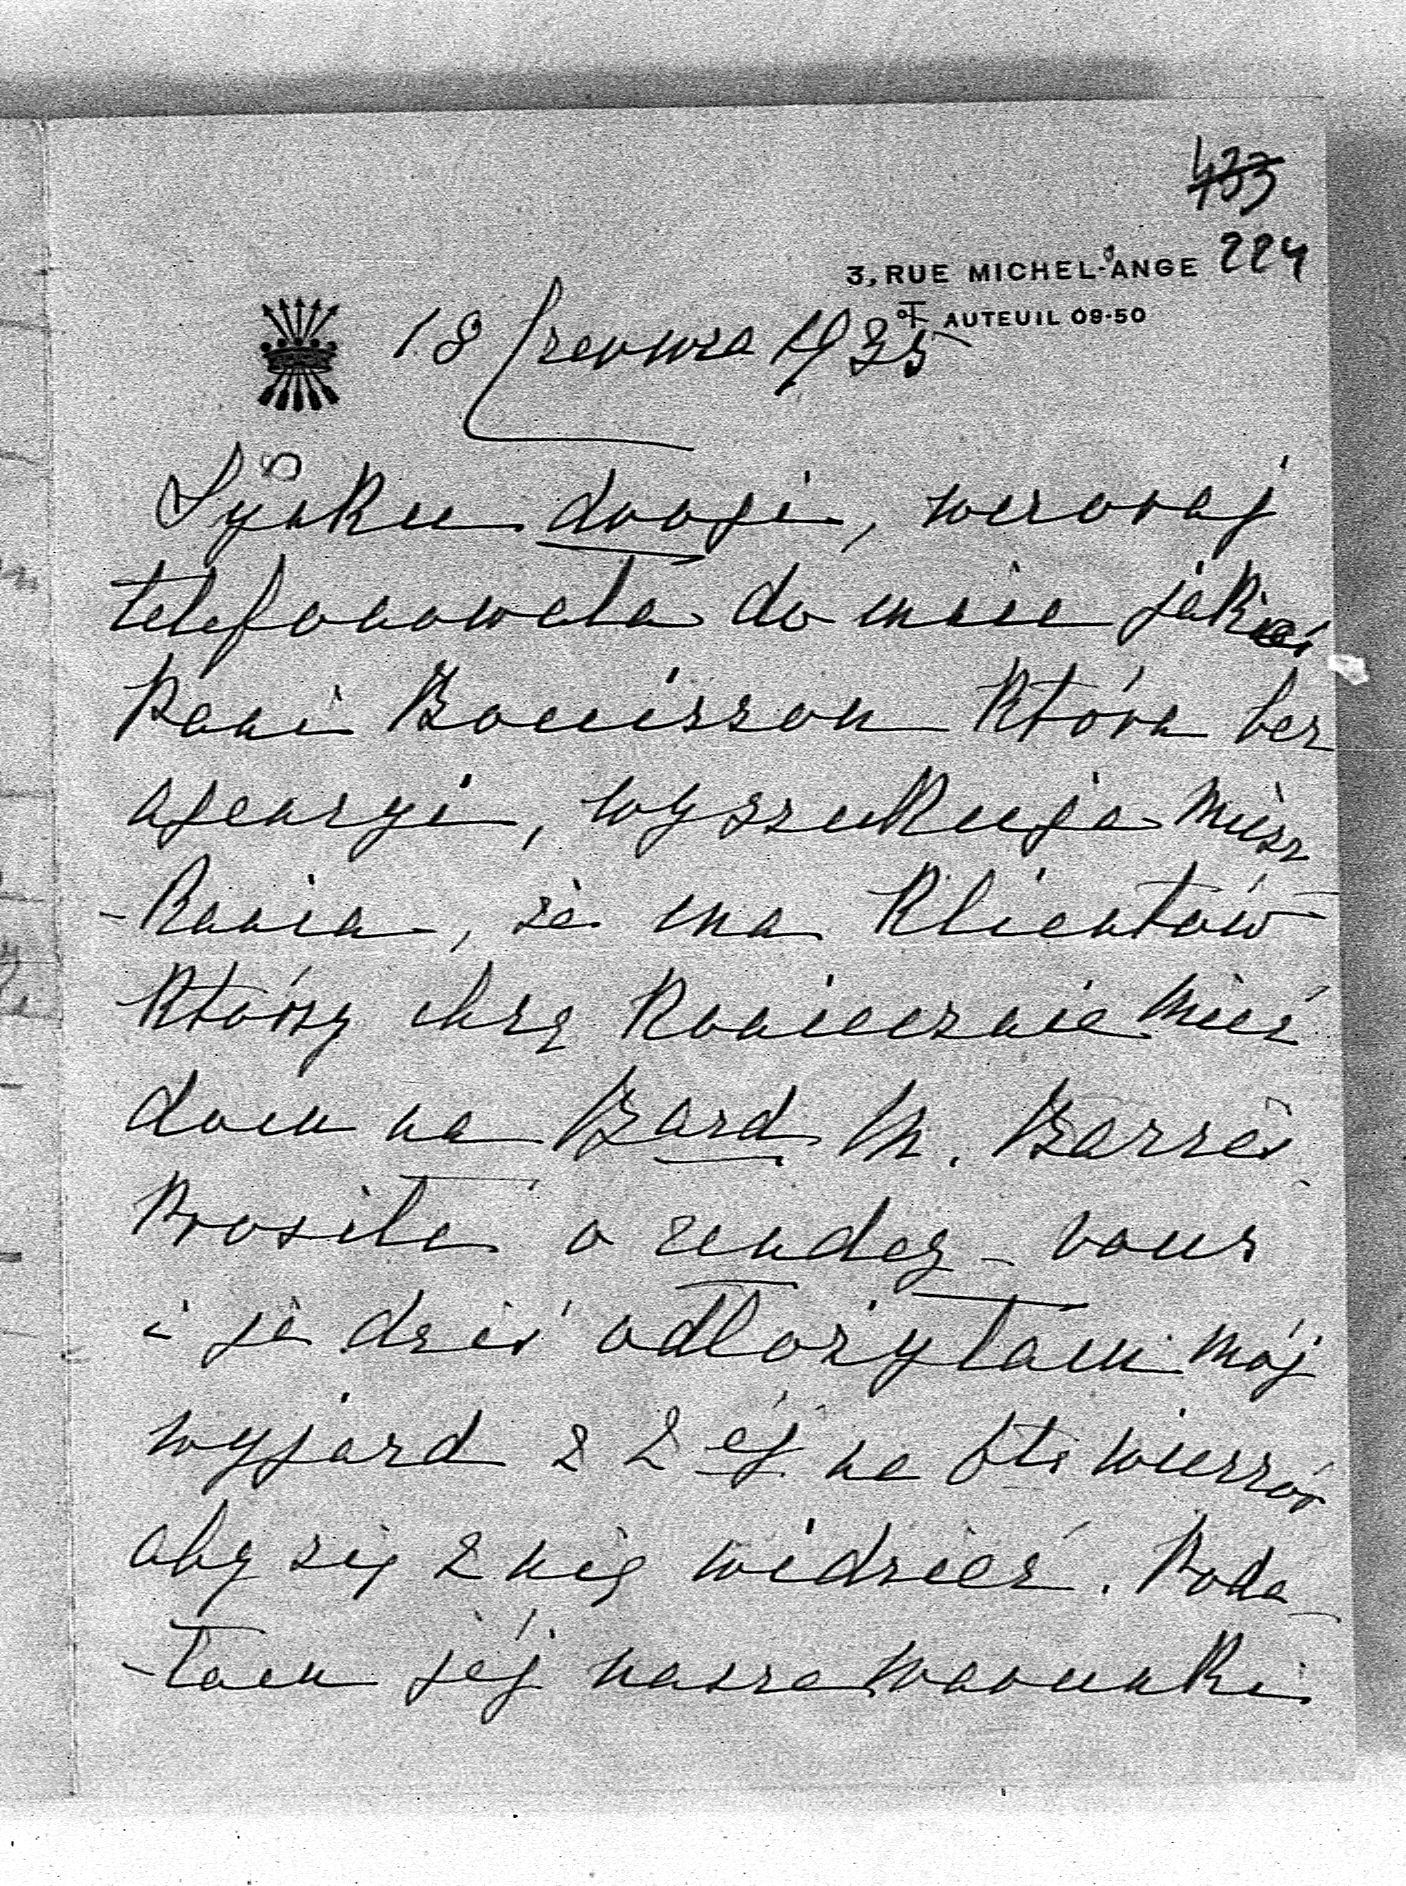 433
224
3, RUE MICHEL-ANGE
AUTEUIL 08-50
18 Czerwca 1935
Synku drogi, wczoraj
telefonowała do mnie jakaś
Pani Bouisson która bez
agencyi, wyszukuje miesz
-kania, że ma klientów
którzy chcą koniecznie mieć
dom na Bard M. Barrès
Prosiła o rendez-vous
i ja dziś odłożyłam mój
wyjazd z 2 ej na 6tą wieczór
aby się z nią widzieć. Poda
-łam jéj nasze warunki